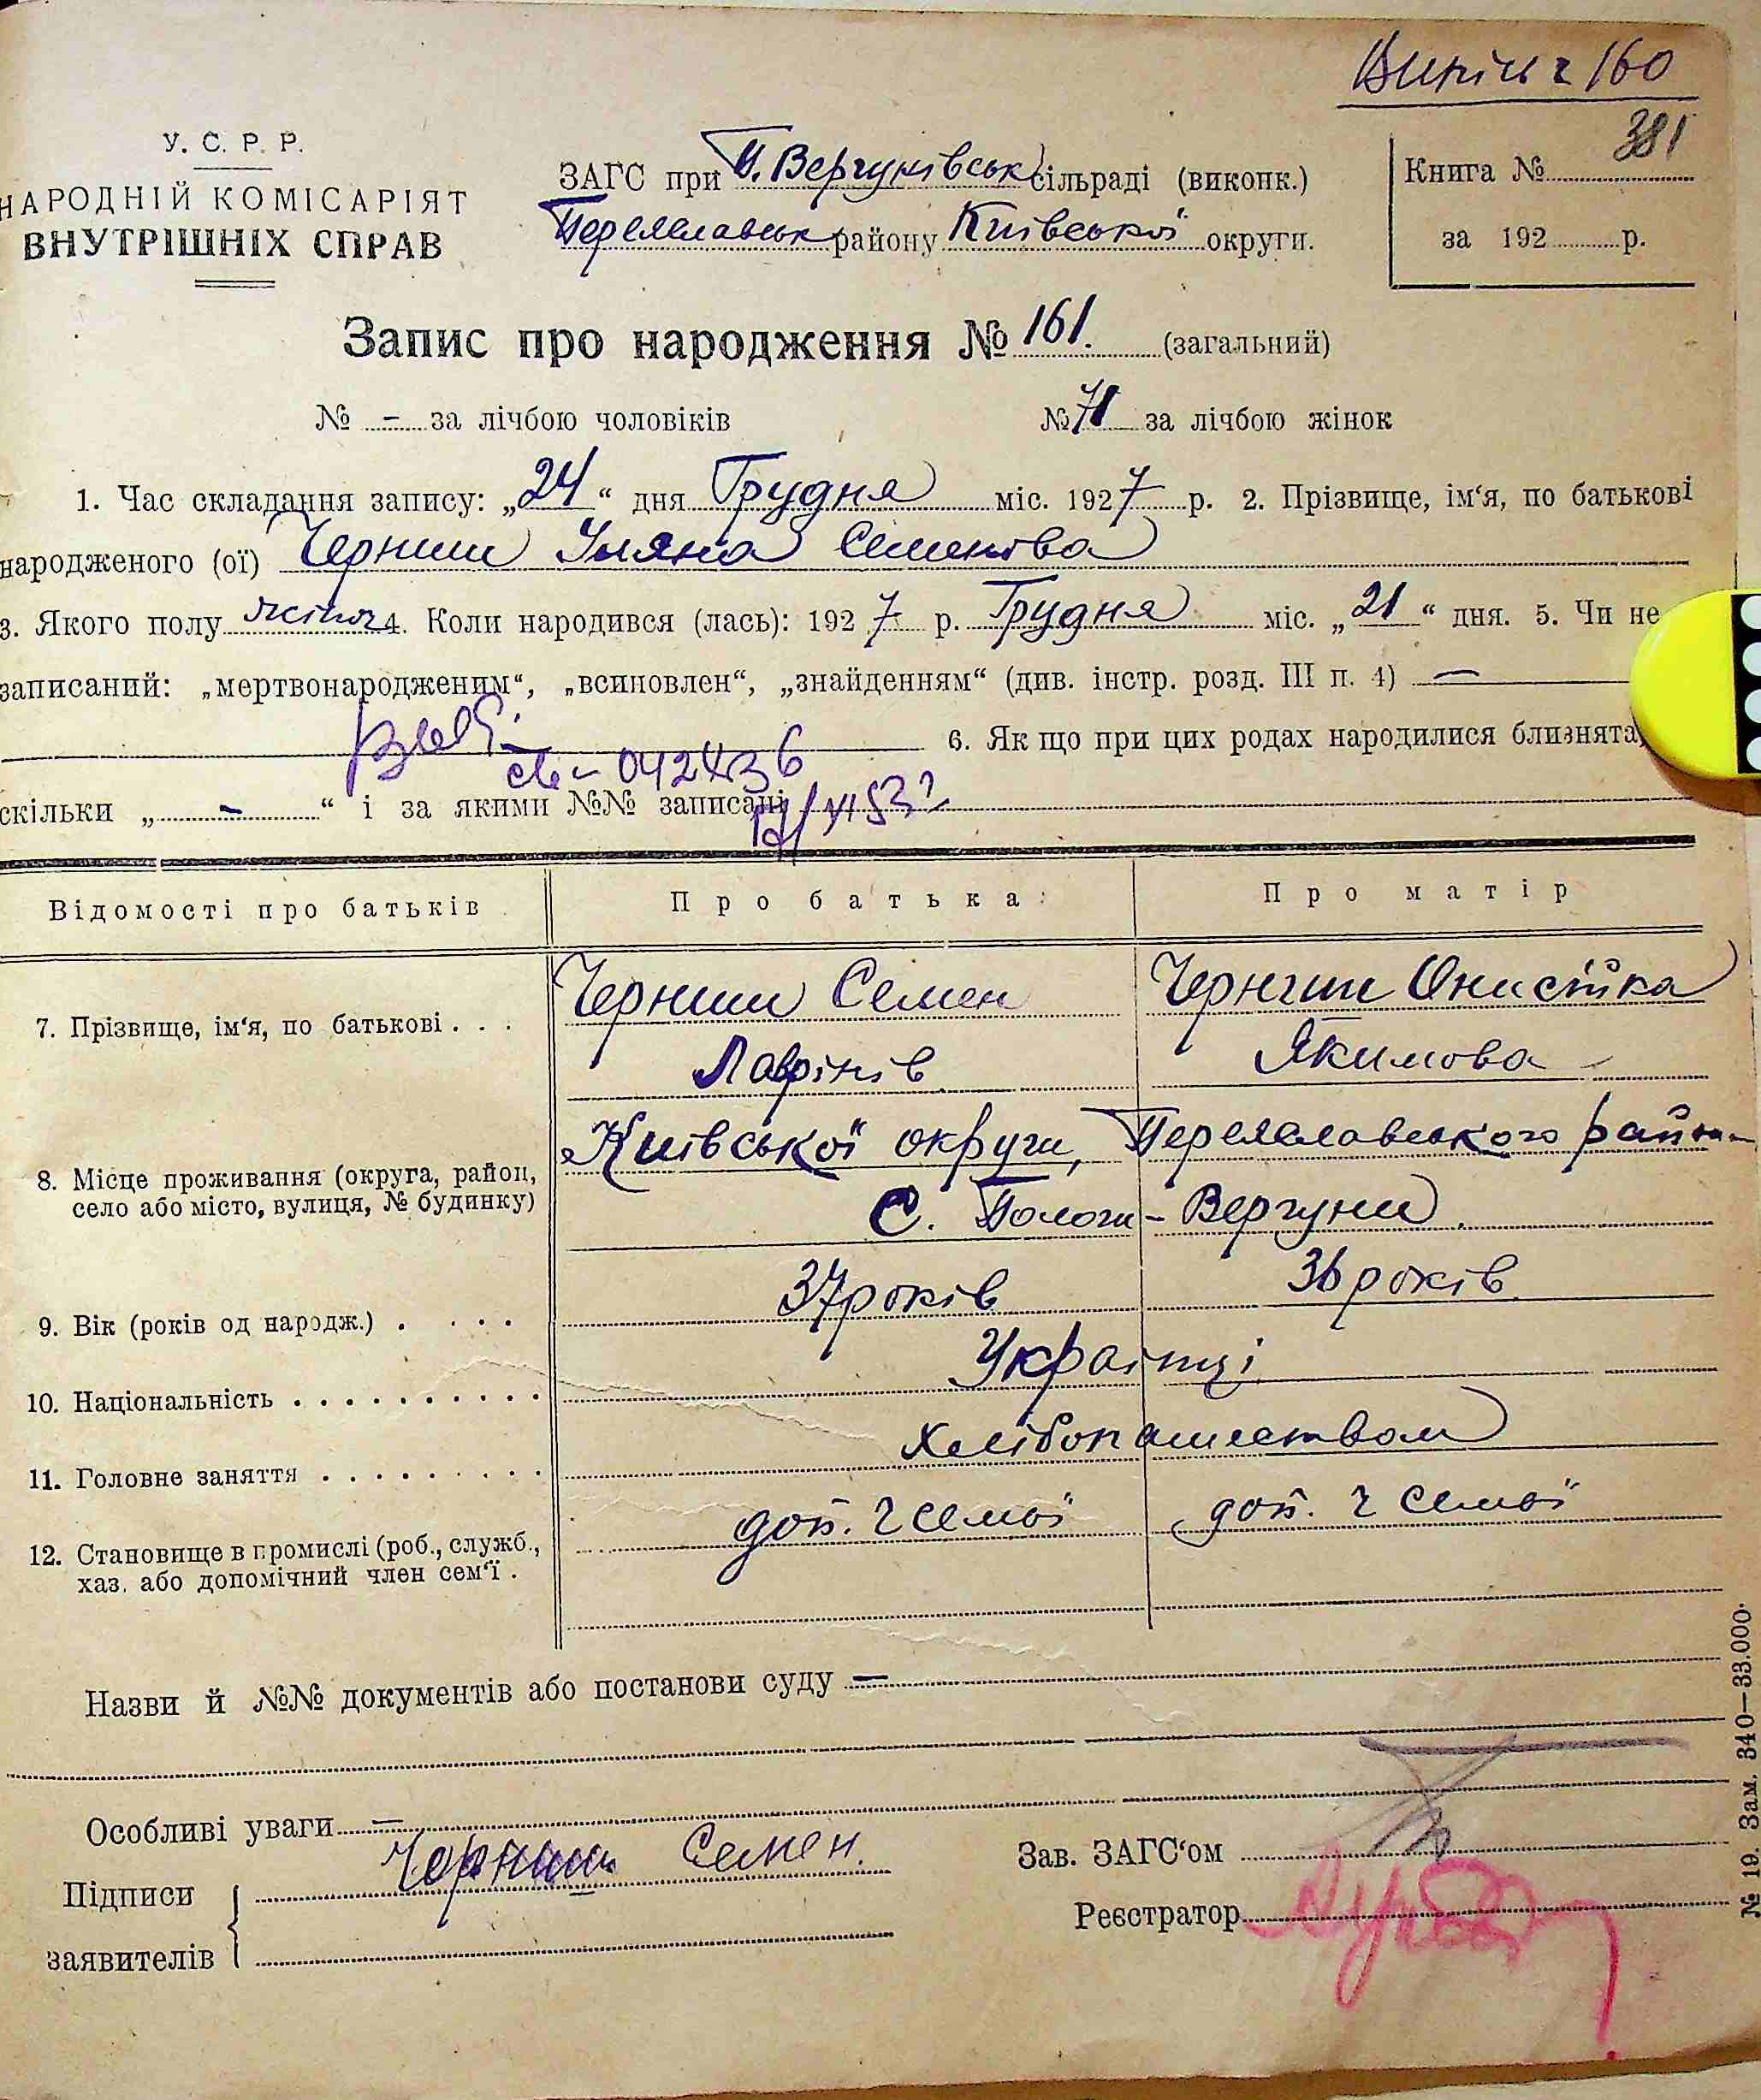 160
381
У. С. Р. Р.
НАРОДНІЙ КОМІСАРІЯТ
ВНУТРІШНІХ СПРАВ
ЗАГС при П. Вергунівськ сільраді (виконк.)
Переяславськ району Київської округи.
Книга №
за 192 р.
Запис про народження № 161. (загальний)
№ – за лічбою чоловіків № 71 за лічбою жінок
1. Час складання запису: „24“ дня Грудня міс. 1927 р. 2. Прізвище, ім‘я, по батькові
народженого (ої) Черниш Уляна Семенова
3. Якого полу жіноч 4. Коли народився (лась): 1927 р. Грудня міс. „21“ дня. 5. Чи не
записаний: „мертвонародженим“, „всиновлен“, „знайденням“ (див. інстр. розд. III п. 4) —
6. Як що при цих родах народилися близнята,
скільки „ – “ і за якими №№ записані
Відомості про батьків Про батька: Про матір
7. Прізвище, ім‘я, по батькові . . . Черниш Семен Черниш Онисійка
Лаврінів Якимова
8. Місце проживання (округа, район, Київської округи, Переяславського район
село або місто, вулиця, № будинку) С. Пологи-Вергуни.
9. Вік (років од народж.) . . . . 37 років 36 років
10. Національність . . . . . . . . . . Українці
11. Головне заняття . . . . . . . . . хлібопашеством
12. Становище в промислі (роб., служб., доп. ч семьї доп. ч семьї
хаз. або допомічний член сем‘ї .
Назви й №№ документів або постанови суду —
Особливі уваги —
Підписи Черниш Семен.
заявителів
Зав. ЗАГС‘ом
Реєстратор
№ 19. Зам. 340—33.000.